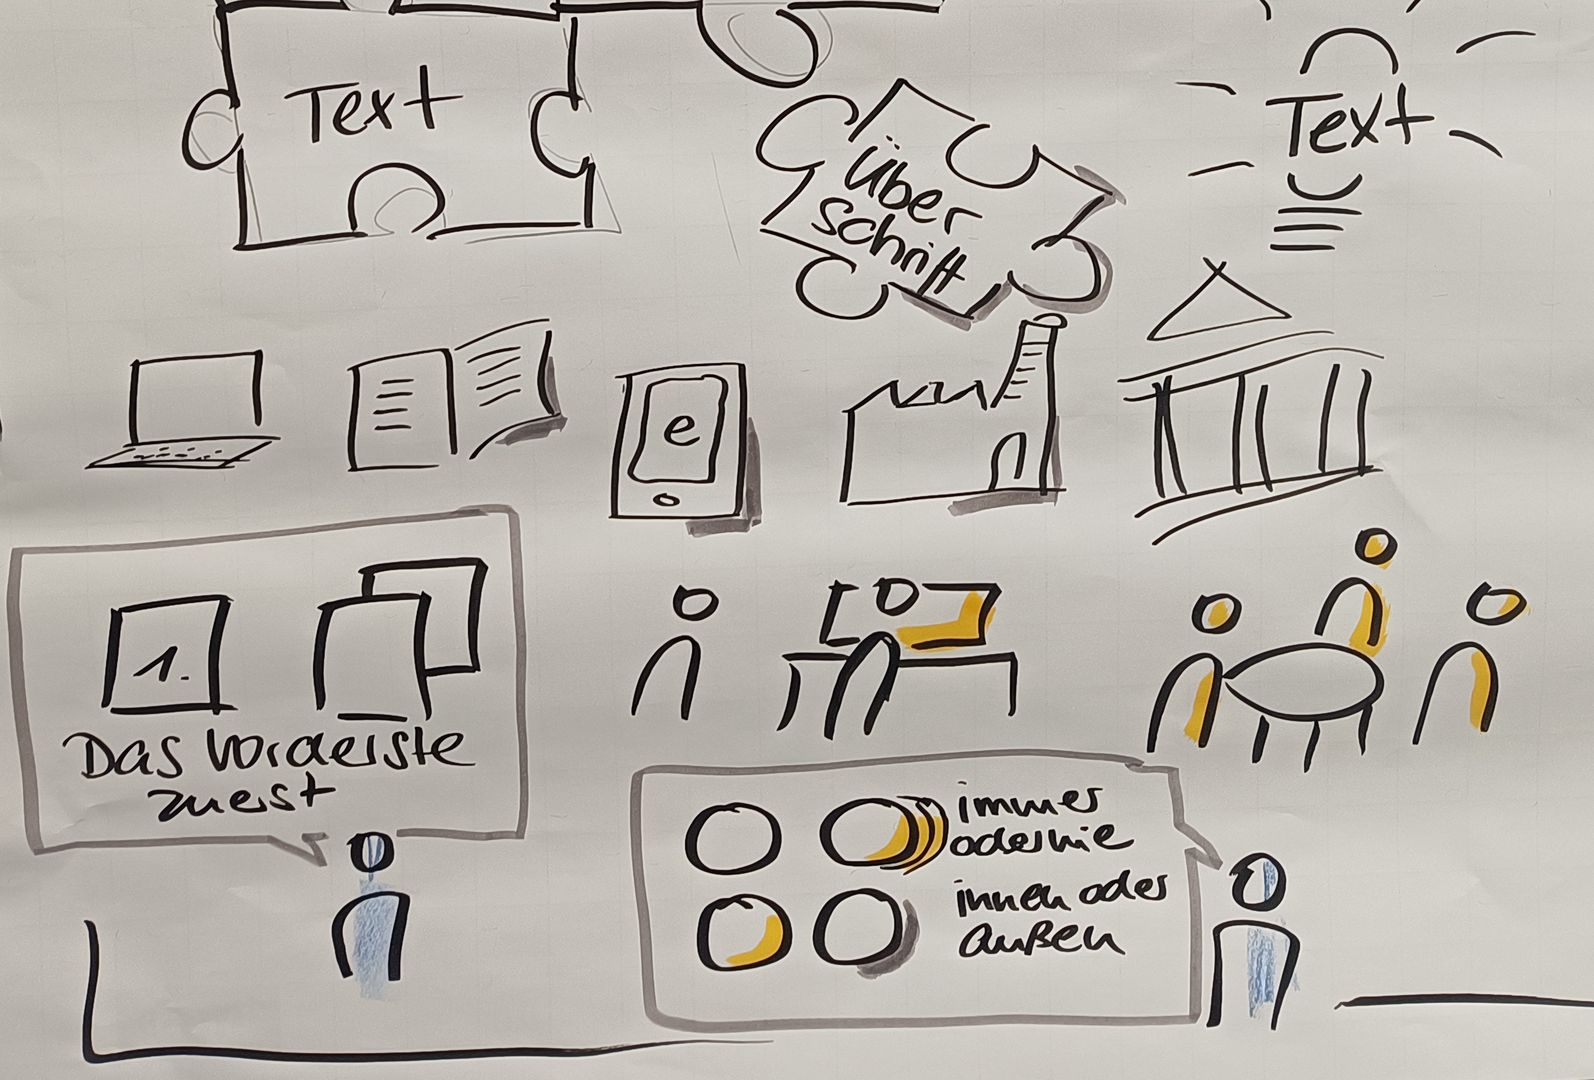 Text
Über
schrift
Text
e
1.
Das vorderste
zuerst
immer
oder nie
innen oder
außen